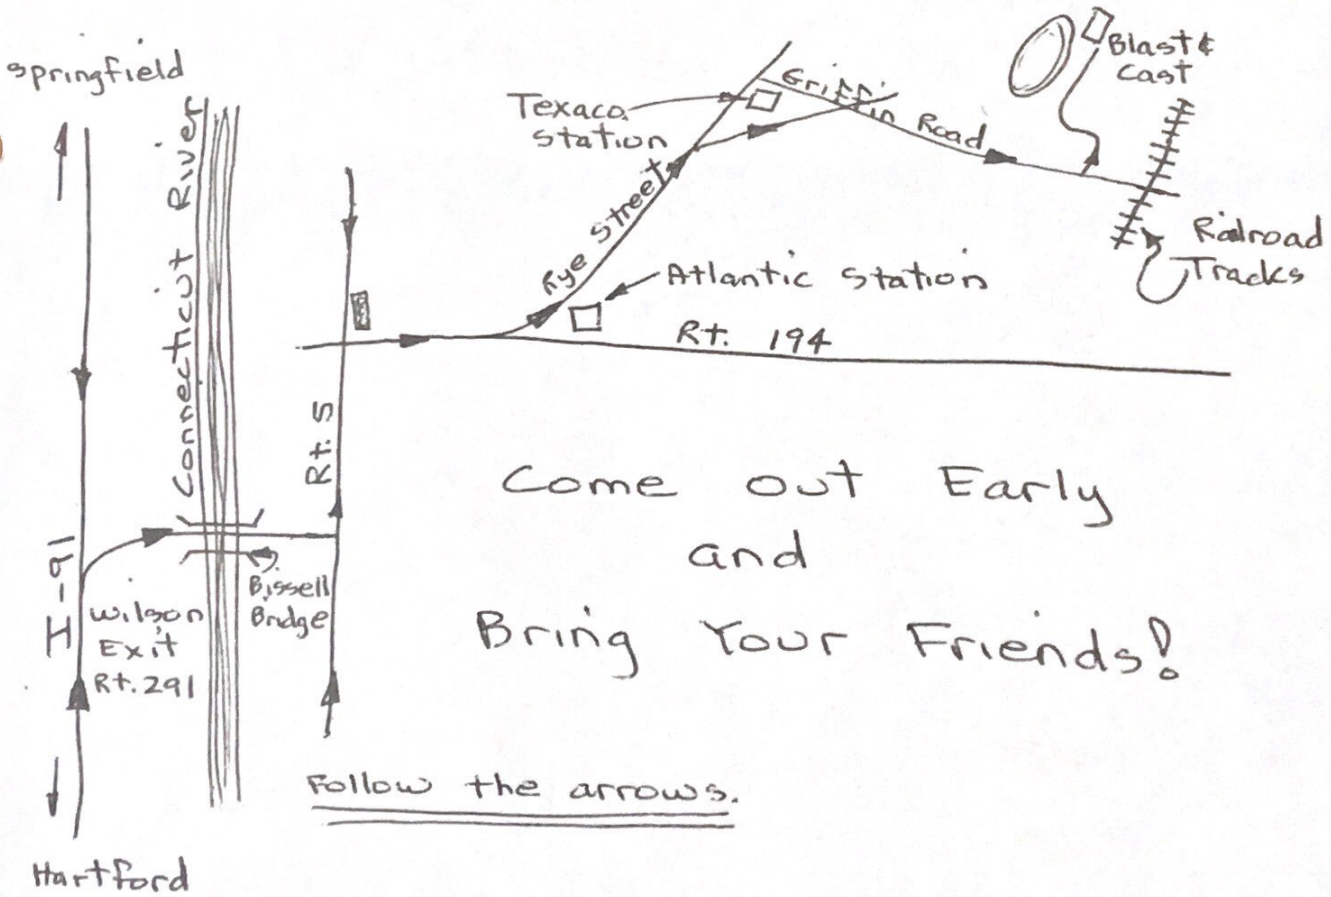 Springfield
Connecticut River
H-91
Wilson
Exit
Rt. 291
Hartford
Bissell
Bridge
Rt. 5
Texaco
Station
Rye Street
Griffin Road
Blast &
Cast
Railroad
Tracks
Atlantic Station
Rt. 194
Come out Early
and
Bring Your Friends!
Follow the arrows.